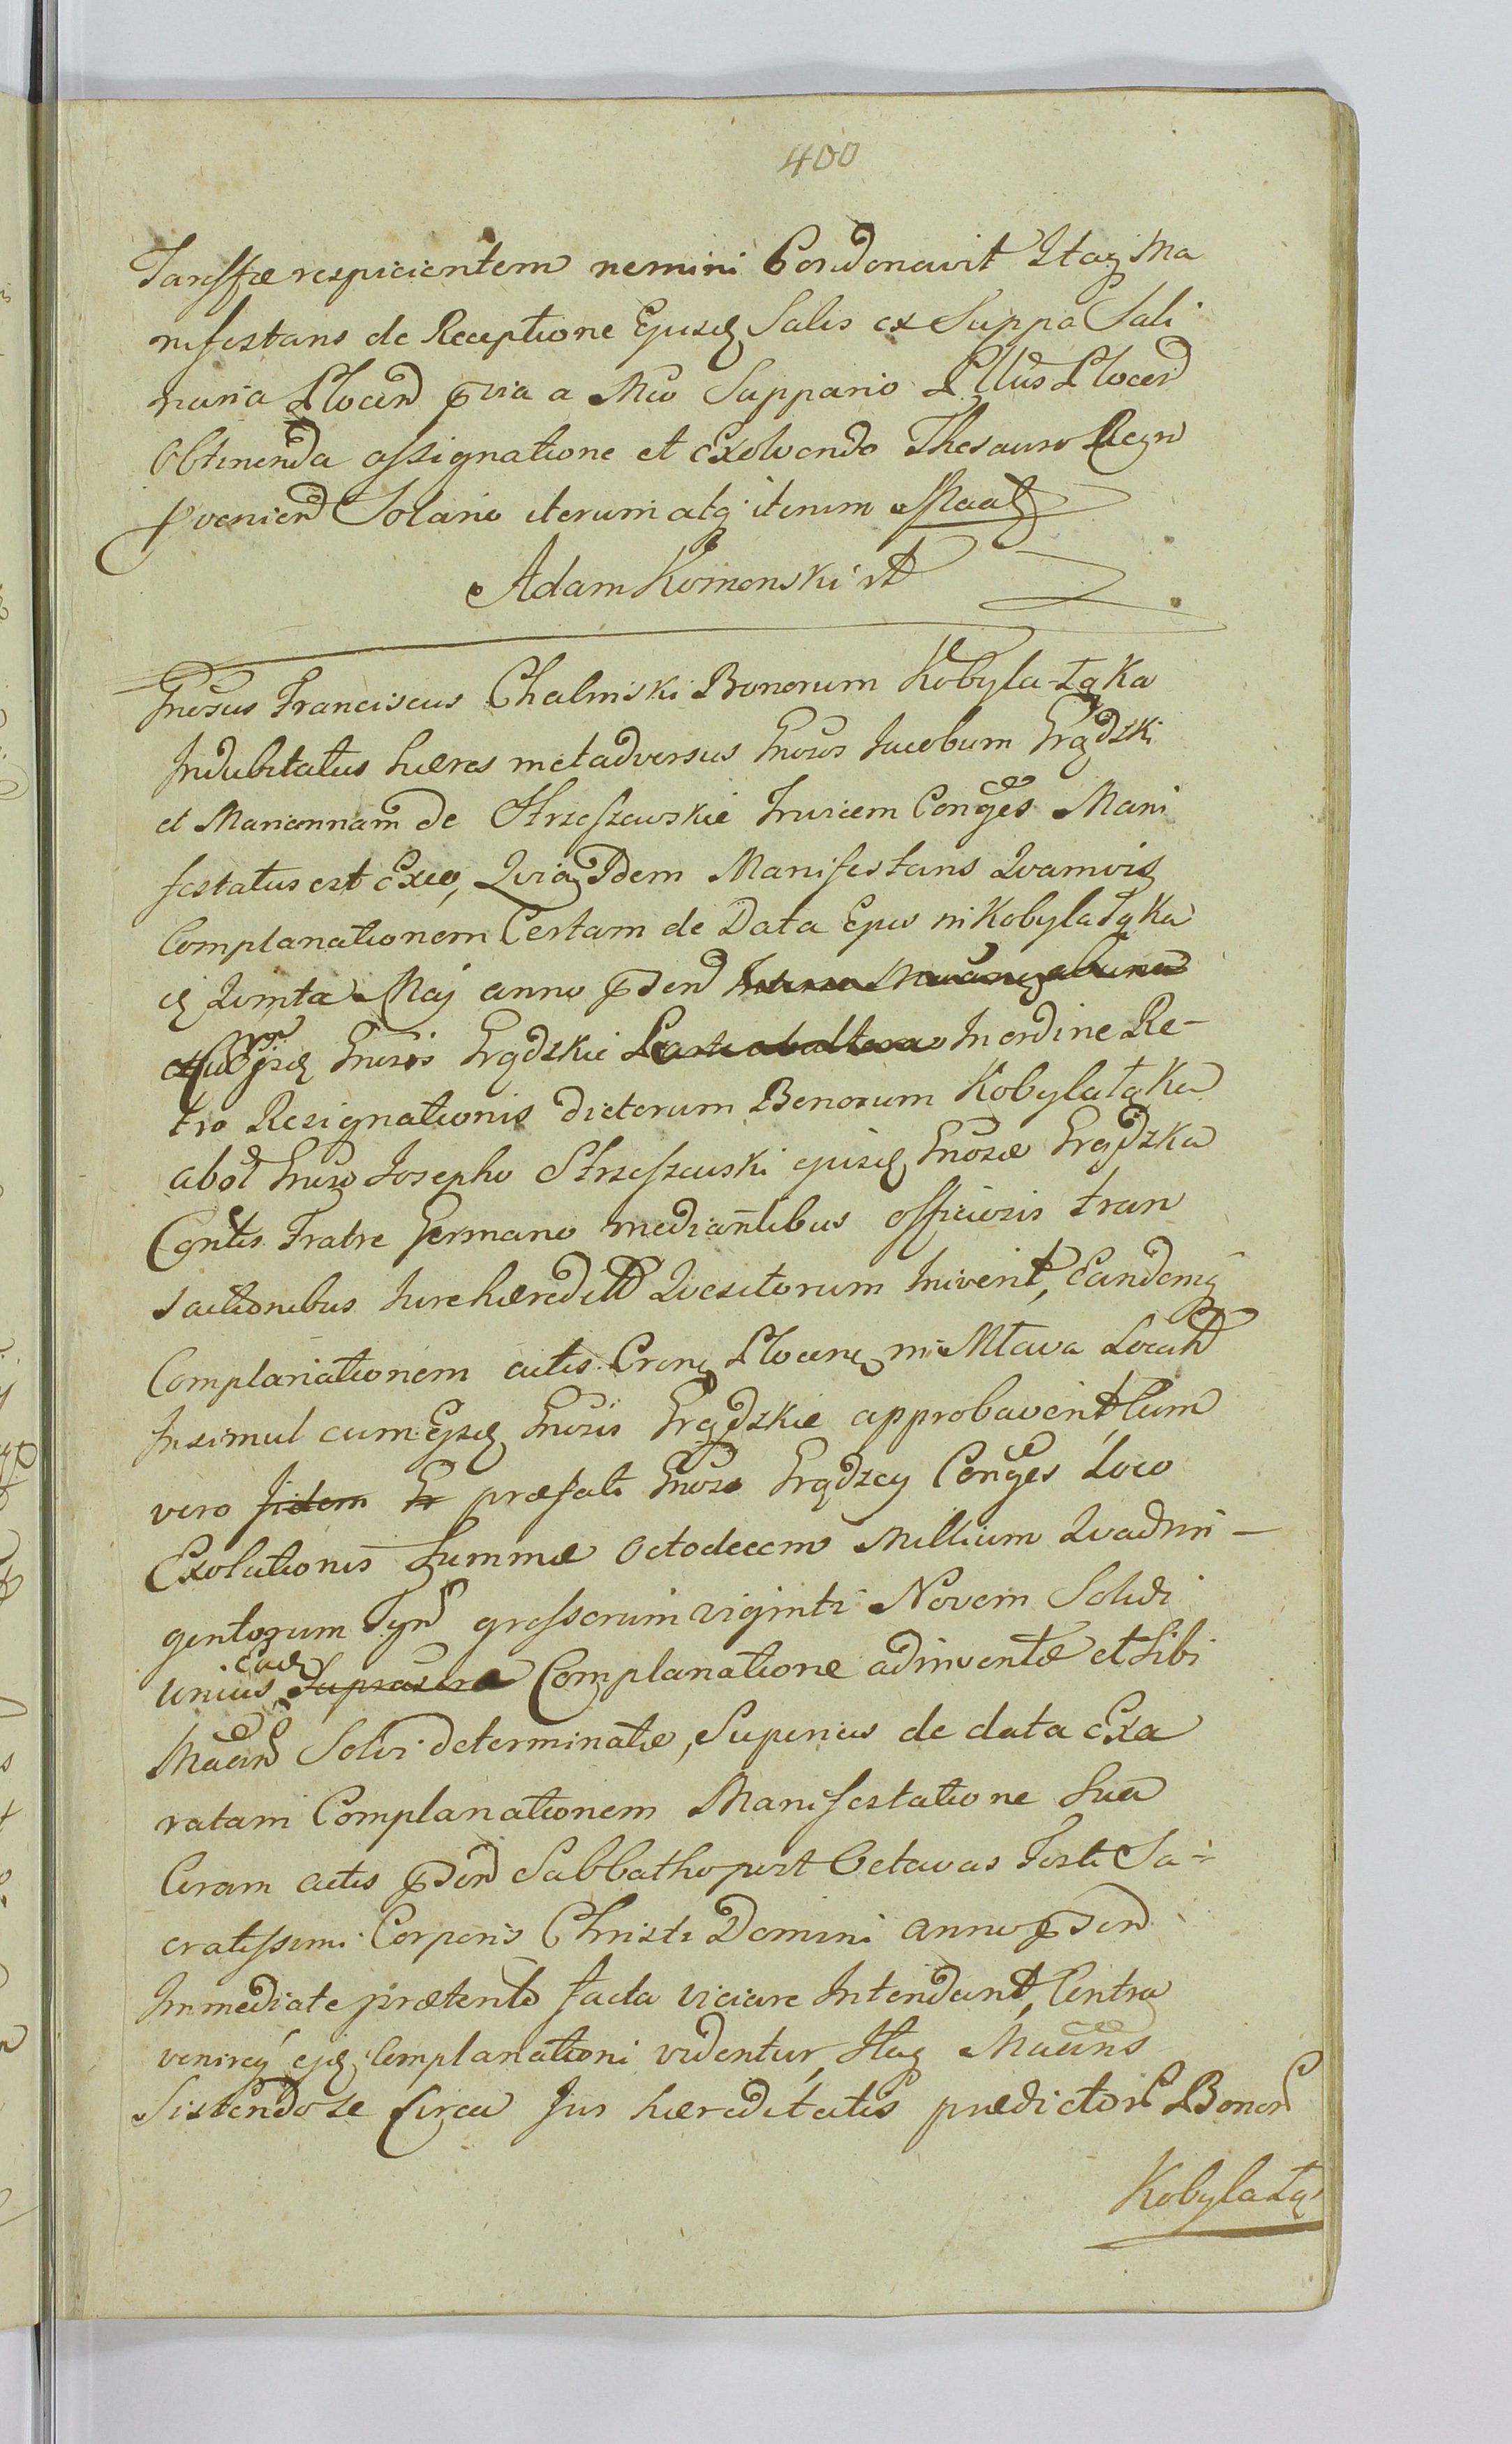 400
Tariffæ respicientem nemini Condonavit Itaq Ma
nifestans de Receptione Ejusd Salis ex Suppa Sali
naria Plocen qvia a Mco Suppario Pllus Plocen
obtinenda assignatione et exolvendo Thesauro Regn
pvenien Solario iterum atq iterum
Adam Komonski
Gnosus Franciscus Chalmski Bonorum Kobyla-Łąka
Indubitatus hæres met adversus Gnosos Jacobum Grądzki
et Mariannam de Strzeszewskie Invicem Conges Mani
festatus est exeo, Qvia Idem Manifestans Qvamvis
Complanationem Certam de Data Ejus in Kobylałąka
d Qvinta Maj anno pden
Gnosis Grądzkie In ordine Re-
tro Resignationis dictorum Bonorum Kobylałąka
ab ol Gnoso Josepho Strzeszewski ejusd Gnosæ Grądzka
Contis Fratre Germano mediantibus officiosis tran
sactionibus Jure hæredit Qvesitorum Inivent, Eandemq
Complanationem actis Cren Plocen in Mława Locat
Insimul cum Ejsd Gnosis Grądzkie approbavent, Cum
vero Iidem Gr præfati Gnosi Grądzcy Conges Loco
Exolutionis Summæ octodecem Millium Qvadrin-
gentorum Tyn grossorum viginti Novem Solidi
unius eadem Complanatione adinventæ et Sibi
Maan Solvi determinatæ, Superius de data exa
ratam Complanationem Manifestatione Sua
Coram actis pden Sabbatho post Octavas Festi Sa-
cratissimi Corporis Christi Domini anno pden
Immediate prætento facta viciare Intendunt, Contra
venireq ejd Complanationi videntur, Itaq Maans
Sistendo se Circa Jus hæreditatis prædictor Bonor
Kobylałą